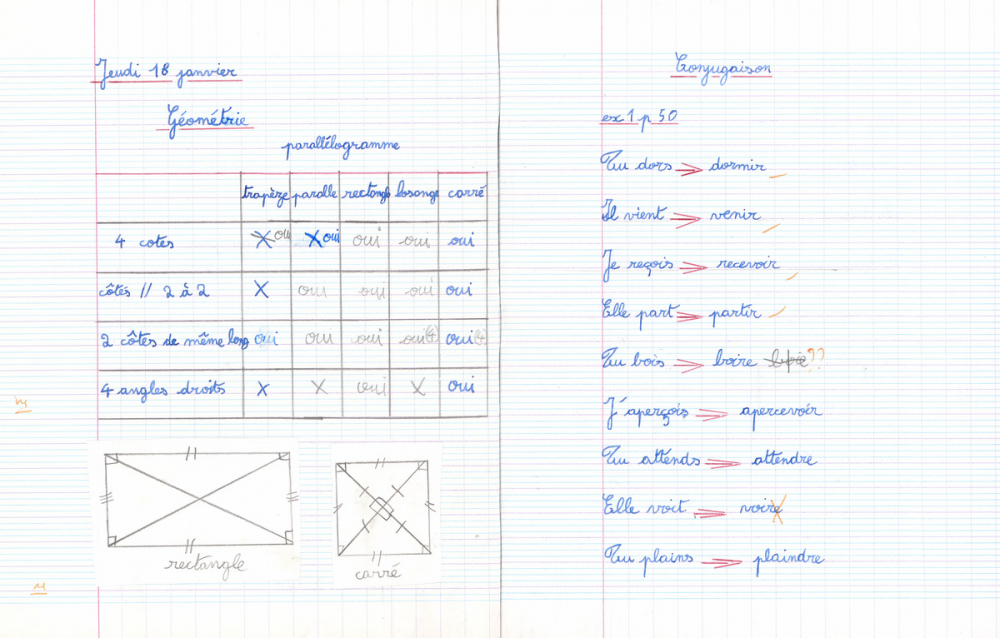 Jeudi 18 janvier
Géométrie
parallélogramme
trapèze paralle rectangle losange carré
4 cotes X oui X oui oui oui oui
côtés // 2 à 2 X oui oui oui oui
2 côtes de même long oui oui oui oui (4) oui (4)
4 angles droits X X oui X oui
rectangle
carré
Conjugaison
ex 1 p 50
Tu dors ⇒ dormir
Il vient ⇒ venir
Je reçois ⇒ recevoir
Elle part ⇒ partir
Tu bois ⇒ boire ??
J'aperçois ⇒ apercevoir
Tu attends ⇒ attendre
Elle voit ⇒ voire
Tu plains ⇒ plaindre